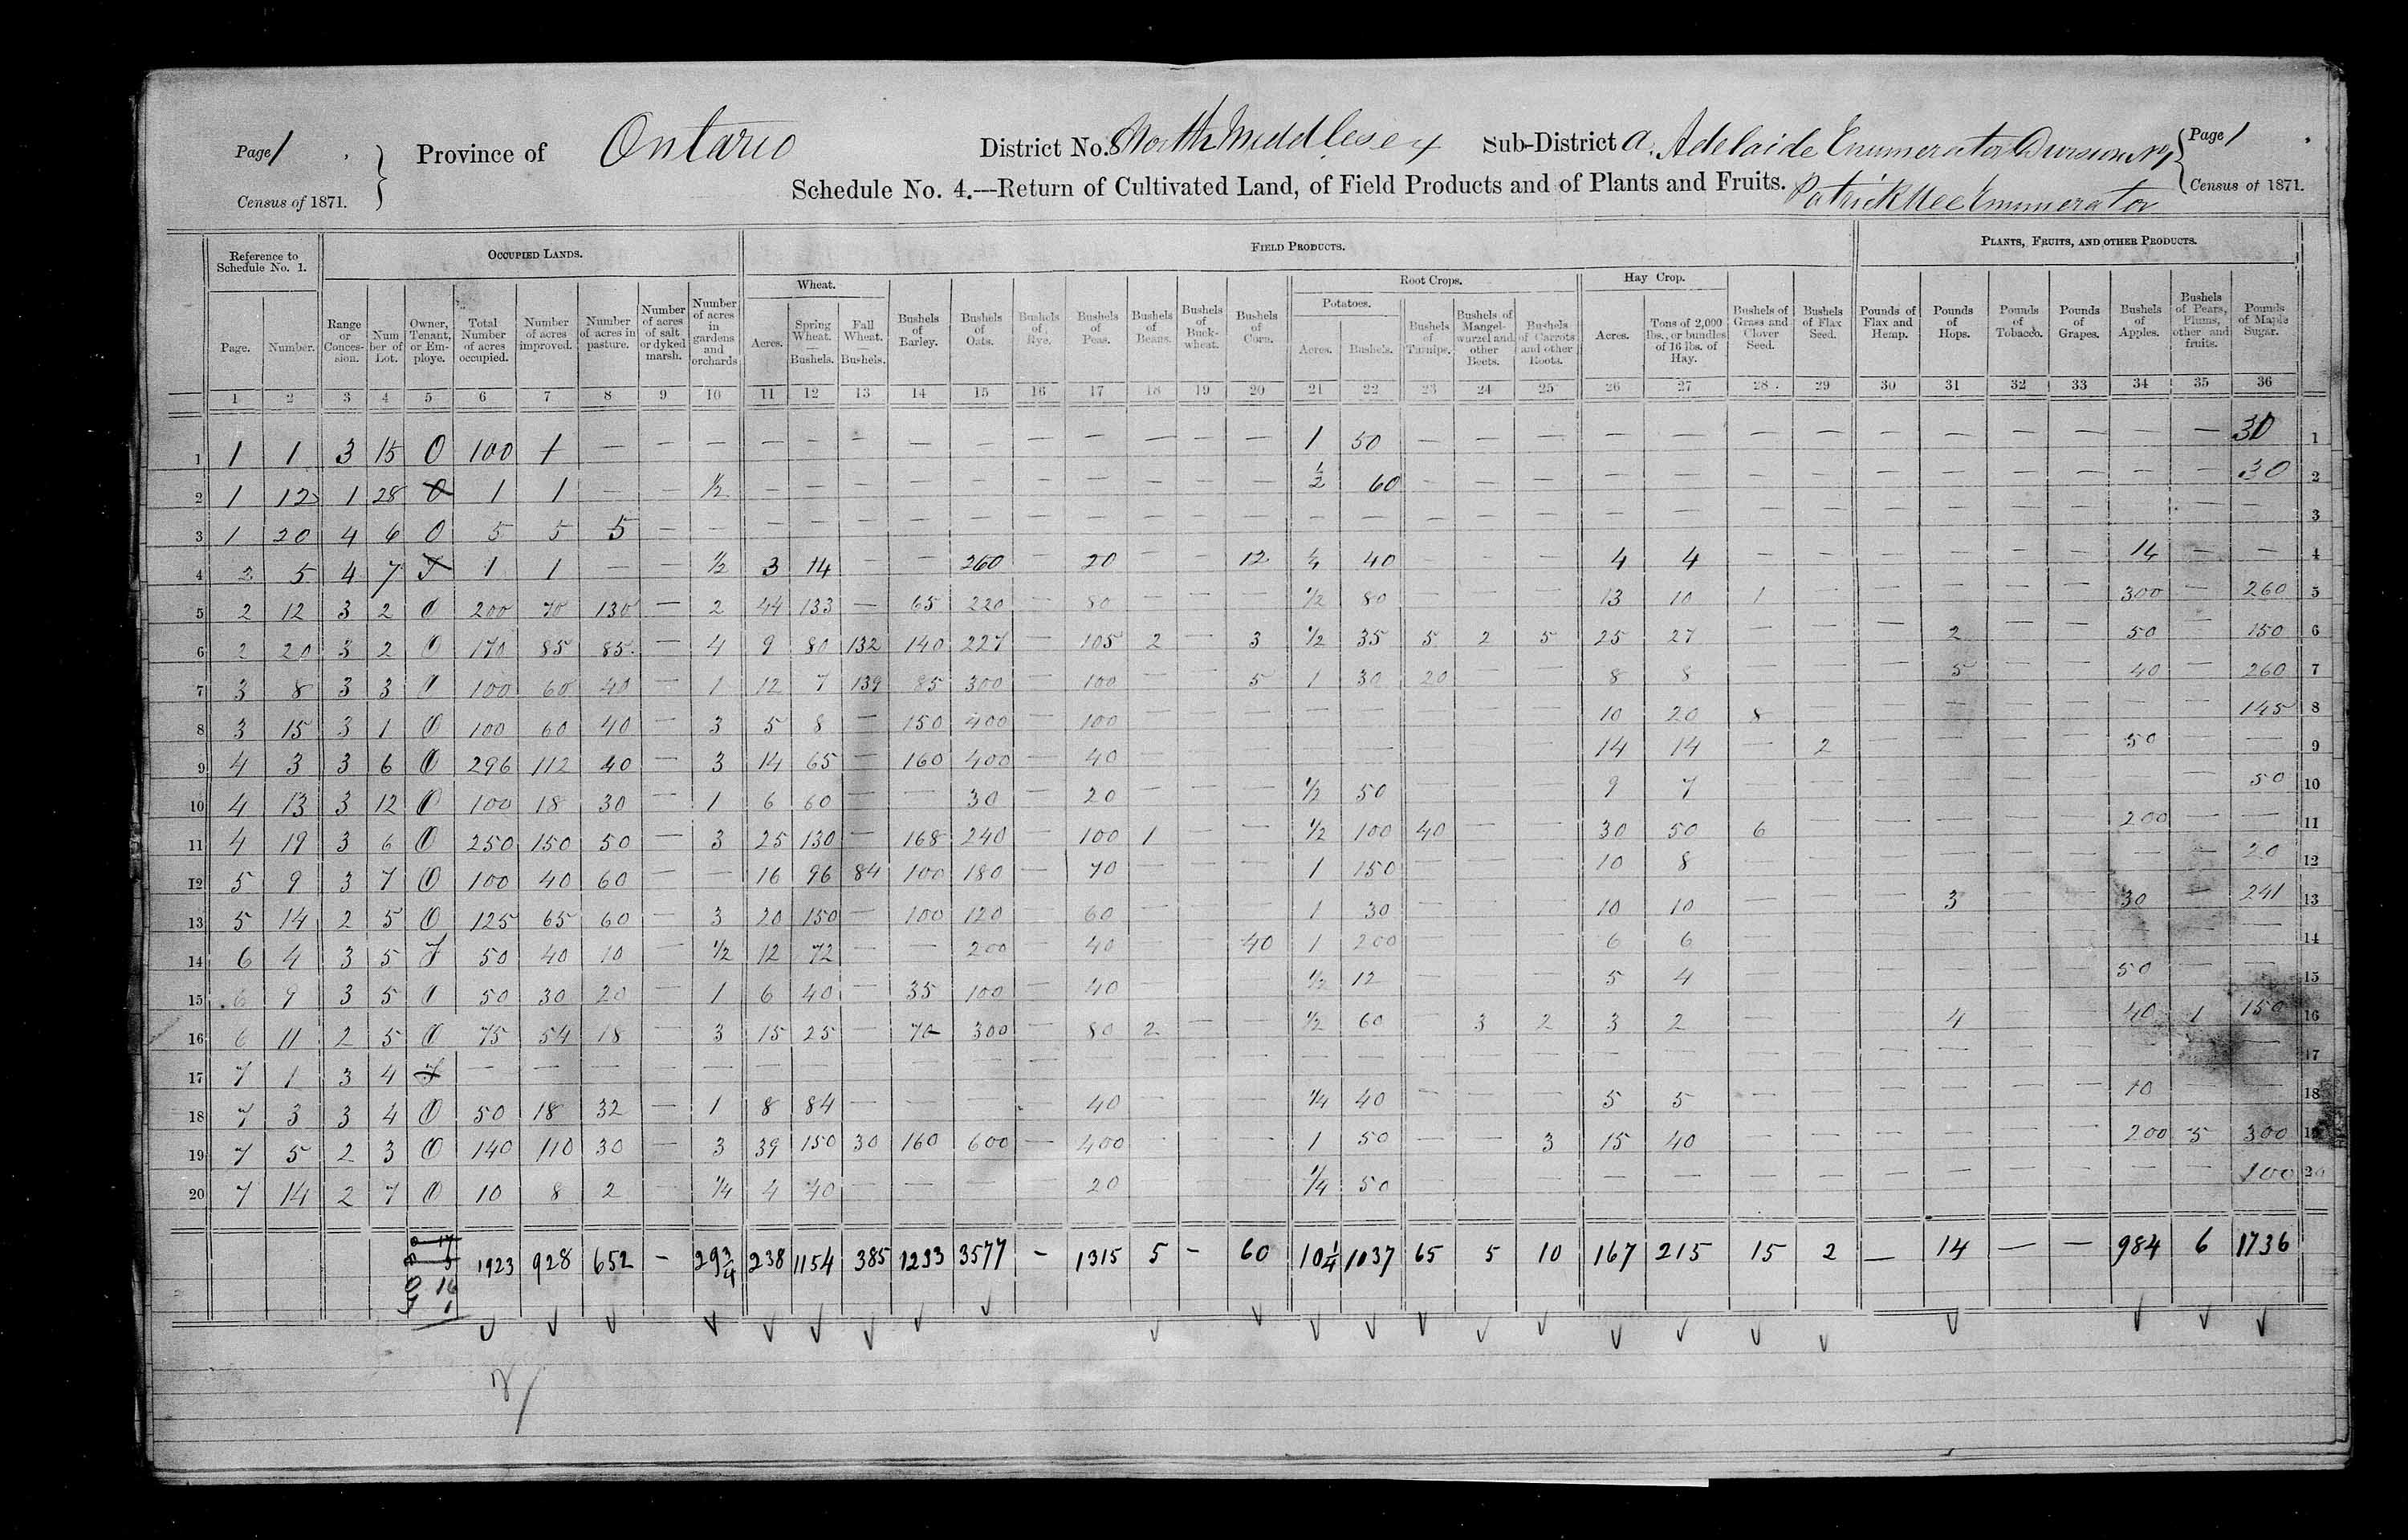 Page 1
Province of Ontario District No. 8 North Middlesex Sub-District a. Adelaide Enumerator Division No 1
Page 1
Census of 1871.
Schedule No. 4.—Return of Cultivated Land, of Field Products and of Plants and Fruits.
Census of 1871.
Patrick Mee Enumerator
Reference to Schedule No. 1. OCCUPIED LANDS. FIELD PRODUCTS. PLANTS, FRUITS, AND OTHER PRODUCTS.
Wheat. Root Crops. Hay Crop.
Potatoes.
Page. Number. Range or Concession. Number of Lot. Owner, Tenant, or Employe. Total Number of acres occupied. Number of acres improved. Number of acres in pasture. Number of acres of salt or dyked marsh. Number of acres in gardens and orchards Acres. Spring Wheat. — Bushels. Fall Wheat. — Bushels. Bushels of Barley. Bushels of Oats. Bushels of Rye. Bushels of Peas. Bushels of Beans. Bushels of Buckwheat. Bushels of Corn. Acres. Bushels. Bushels of Turnips. Bushels of Mangel-wurzel and other Beets. Bushels of Carrots and other Roots. Acres. Tons of 2,000 lbs., or bundles of 16 lbs. of Hay. Bushels of Grass and Clover Seed. Bushels of Flax Seed. Pounds of Flax and Hemp. Pounds of Hops. Pounds of Tobacco. Pounds of Grapes. Bushels of Apples. Bushels of Pears, Plums, and other fruits. Pounds of Maple Sugar.
1 2 3 4 5 6 7 8 9 10 11 12 13 14 15 16 17 18 19 20 21 22 23 24 25 26 27 28 29 30 31 32 33 34 35 36
1 1 1 3 15 O 100 1 — — — — — — — — — — — — — 1 50 — — — — — — — — — — — — — 30 1
2 1 12 1 28 O 1 1 — — ½ — — — — — — — — — — ½ 60 — — — — — — — — — — — — — 30 2
3 1 20 4 6 O 5 5 5 — — — — — — — — — — — — — — — — — — — — — — — — — — — — 3
4 2 5 4 7 T 1 1 — — ½ 3 14 — — 260 — 20 — — 12 ¼ 40 — — — 4 4 — — — — — — 14 — — 4
5 2 12 3 2 O 200 70 130 — 2 44 133 — 65 220 — 80 — — — ½ 80 — — — 13 10 1 — — — — — 300 — 260 5
6 2 20 3 2 O 170 85 85 — 4 9 80 132 140 227 — 105 2 — 3 ½ 35 5 2 5 25 27 — — — 2 — — 50 — 150 6
7 3 8 3 3 O 100 60 40 — 1 12 7 139 85 300 — 100 — — 5 1 30 20 — — 8 8 — — — 5 — — 40 — 260 7
8 3 15 3 1 O 100 60 40 — 3 5 8 — 150 400 — 100 — — — — — — — — 10 20 8 — — — — — — — 145 8
9 4 3 3 6 O 296 112 40 — 3 14 65 — 160 400 — 40 — — — — — — — — 14 14 — 2 — — — — 50 — — 9
10 4 13 3 12 O 100 18 30 — 1 6 60 — — 30 — 20 — — — ½ 50 — — — 9 7 — — — — — — — — 50 10
11 4 19 3 6 O 250 150 50 — 3 25 130 — 168 240 — 100 1 — — ½ 100 40 — — 30 50 6 — — — — — 200 — — 11
12 5 9 3 7 O 100 40 60 — — 16 96 84 100 180 — 70 — — — 1 150 — — — 10 8 — — — — — — — — 20 12
13 5 14 2 5 O 125 65 60 — 3 20 150 — 100 120 — 60 — — — 1 30 — — — 10 10 — — — 3 — — 30 — 241 13
14 6 4 3 5 T 50 40 10 — ½ 12 72 — — 200 — 40 — — 40 1 200 — — — 6 6 — — — — — — — — — 14
15 6 9 3 5 O 50 30 20 — 1 6 40 — 35 100 — 40 — — — ½ 12 — — — 5 4 — — — — — — 50 — — 15
16 6 11 2 5 O 75 54 18 — 3 15 25 — 70 300 — 80 2 — — ½ 60 — 3 2 3 2 — — — 4 — — 40 1 150 16
17 7 1 3 4 T — — — — — — — — — — — — — — — — — — — — — — — — — — — — — — — 17
18 7 3 3 4 O 50 18 32 — 1 8 84 — — — — 40 — — — ¼ 40 — — — 5 5 — — — — — — 10 — — 18
19 7 5 2 3 O 140 110 30 — 3 39 150 30 160 600 — 400 — — — 1 50 — — 3 15 40 — — — — — — 200 5 300 19
20 7 14 2 7 O 10 8 2 — ¼ 4 40 — — — — 20 — — — ¼ 50 — — — — — — — — — — — — — 100 20
1923 928 652 — 29¾ 238 1154 385 1233 3577 — 1315 5 — 60 10¼ 1037 65 5 10 167 215 15 2 — 14 — — 984 6 1736
O 16
T 1